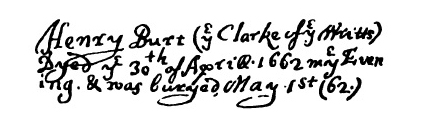 Henry Burt (yᵉ Clarke of yᵉ Writts)
Dyed yᵉ 30th of Aprill. 1662 in yᵉ Even
ing. & was buryed, May. 1st (62.)